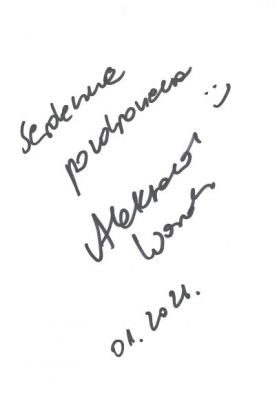 Serdeczne
pozdrowienia :)
Aleksander
01.2021.